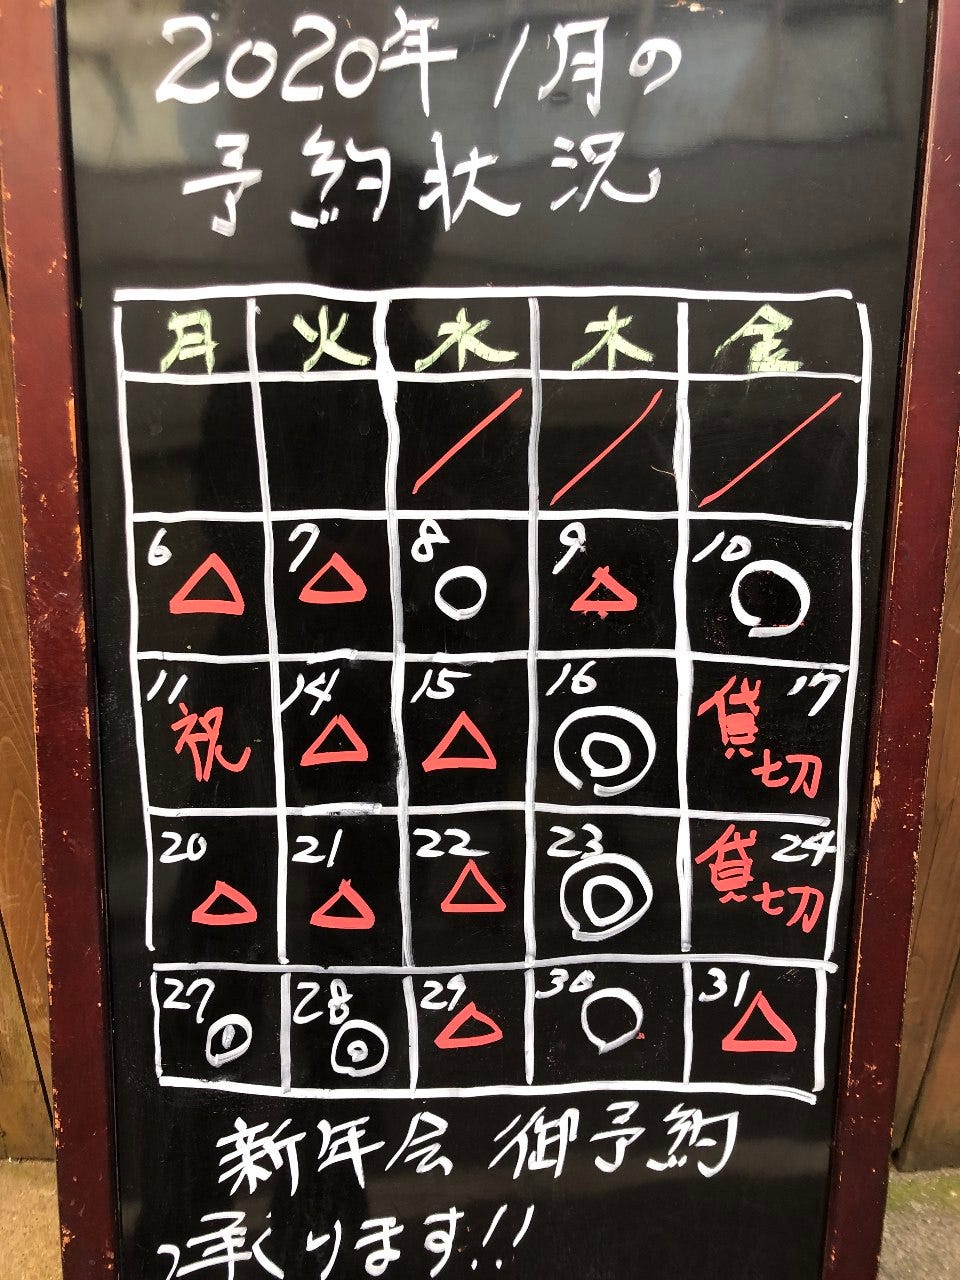 2020年1月の
予約状況
月 火 水 木 金
/ / /
6 △ 7 △ 8 ○ 9 △ 10 ○
11 祝 14 △ 15 △ 16 ◎ 17 貸切
20 △ 21 △ 22 △ 23 ◎ 24 貸切
27 ◎ 28 ◎ 29 △ 30 ○ 31 △
新年会 御予約
承ります!!